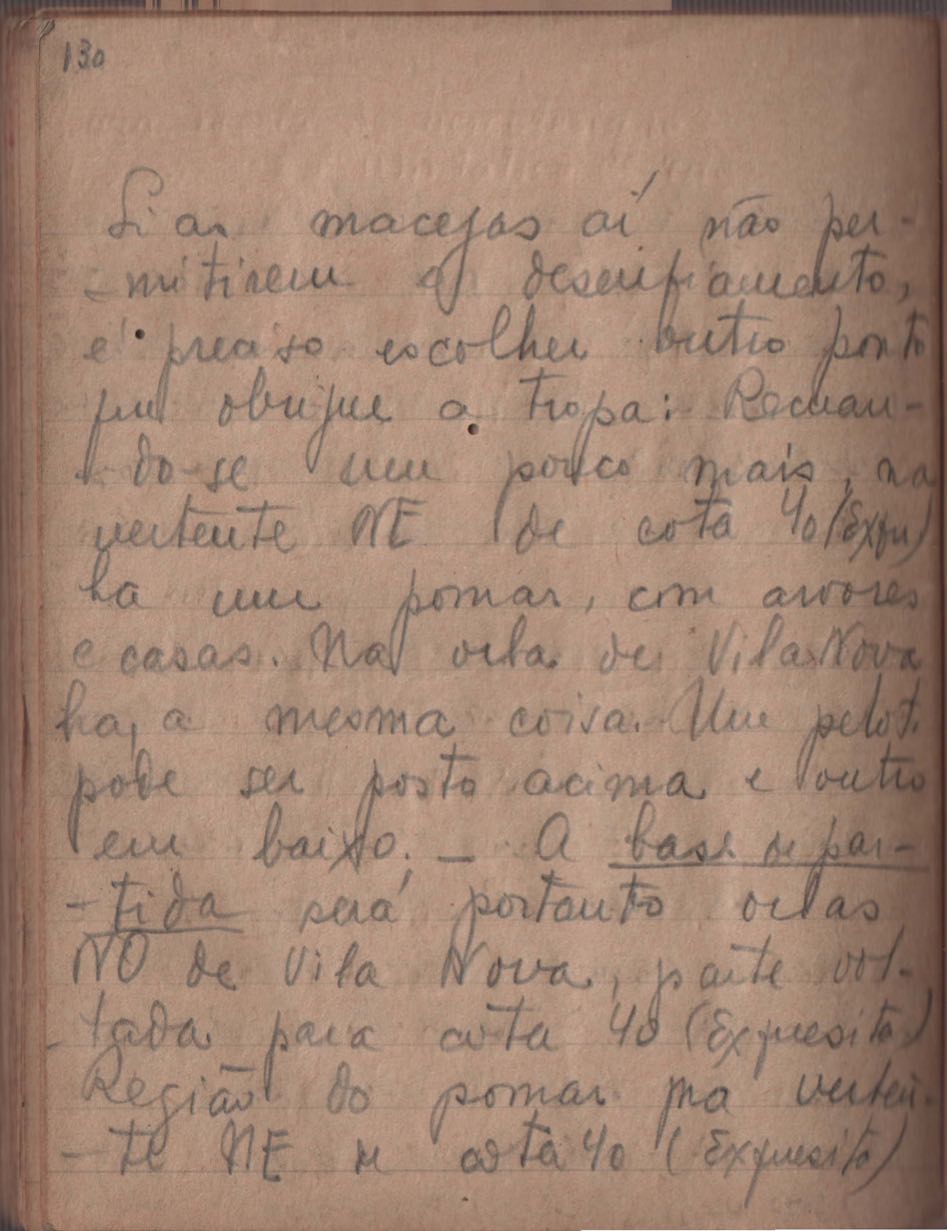 130
Si as macegas aí não per-
-mitirem o desenfiamento,
é preciso escolher outro ponto
que obrigue a tropa: Recuan-
-do-se um pouco mais, na
vertente NE de cota 40 (Exqu)
ha um pomar, com arvores
e casas. Na orla de Vila Nova
ha, a mesma coisa. Um pelot.
pode ser posto acima e outro
em baixo. - A base de par-
-tida será portanto orlas
NO de Vila Nova, parte vol-
-tada para cota 40 (Exquesito)
Região do pomar na verten-
-te NE de cota 40 (Exquesito)